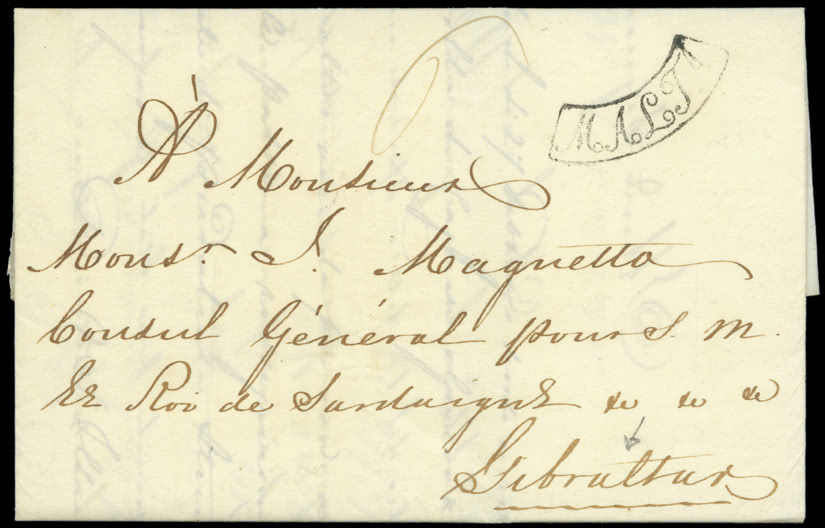 MALTA
À Monsieur
Monsr. J. Magnetto
Consul Général pour S. M.
Le Roi de Sardaigne &c &c &c
Gibraltar